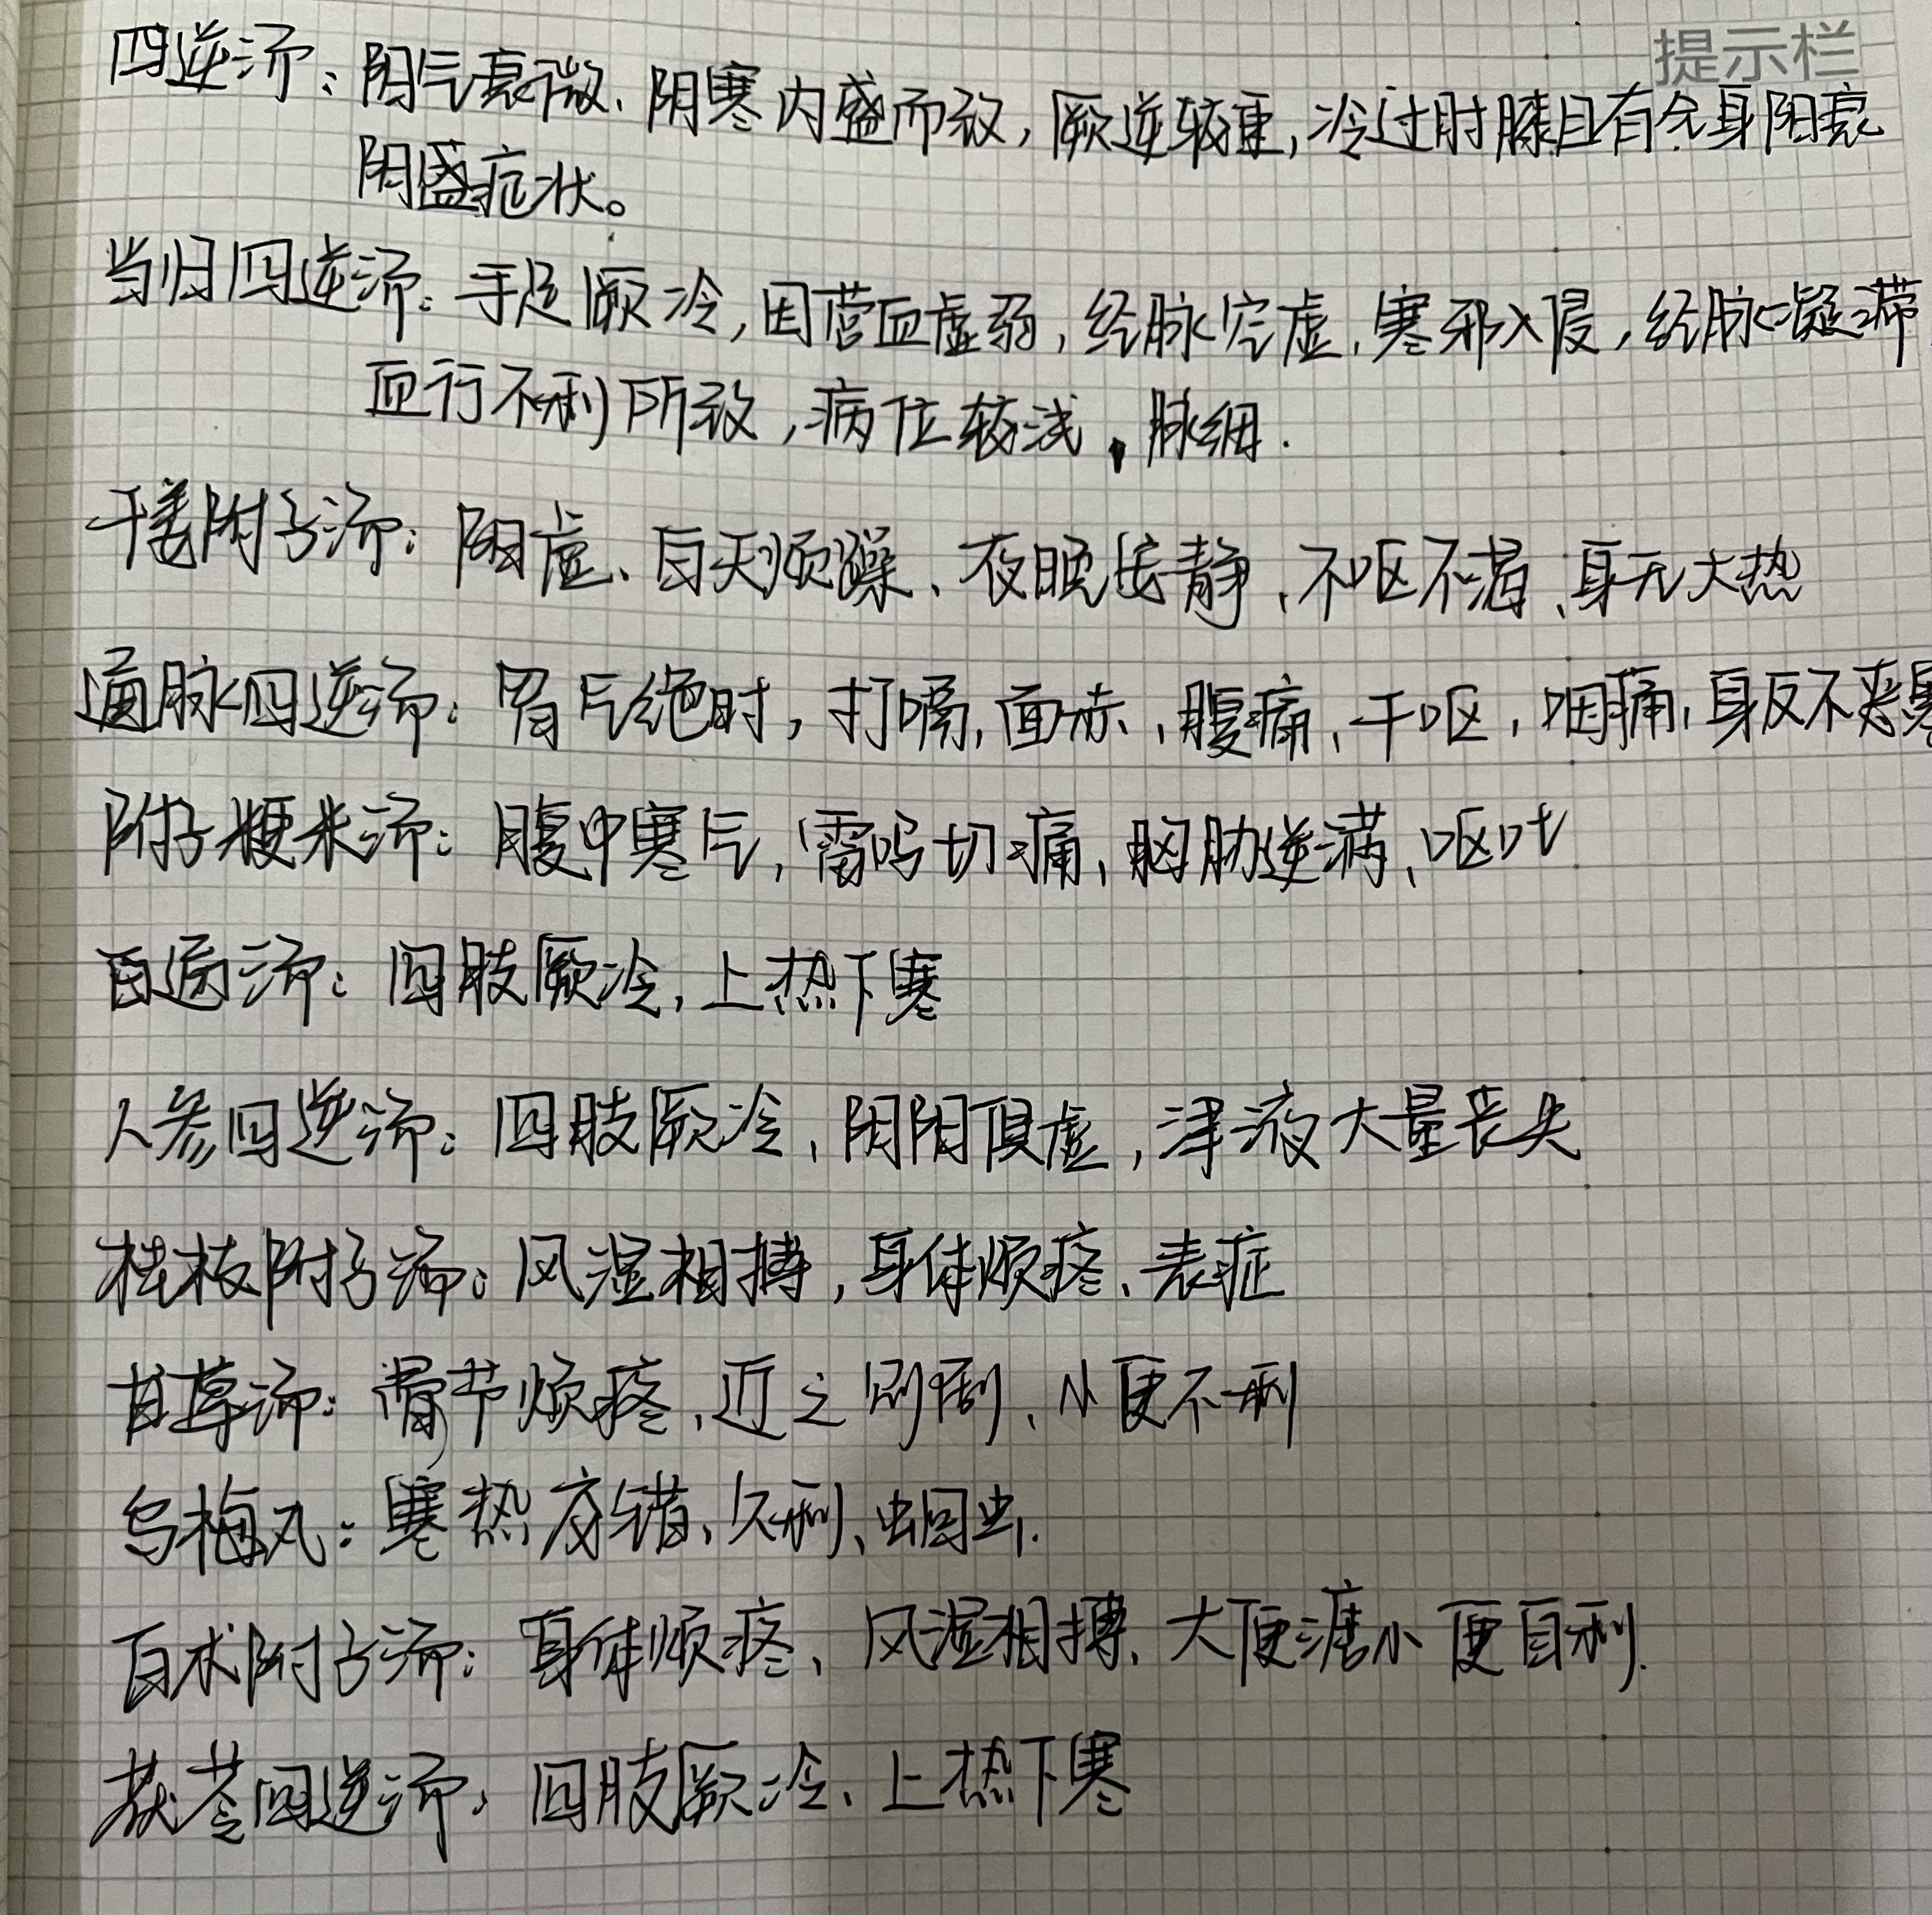 提示栏
四逆汤：阳气衰微、阴寒内盛而致，厥逆较重，冷过肘膝且有全身阳衰
阴盛症状。
当归四逆汤：手足厥冷，因营血虚弱，经脉空虚、寒邪入侵，经脉凝滞，
血行不利所致，病位较浅，脉细.
干姜附子汤：阳虚、白天烦躁、夜晚安静、不呕不渴、身无大热
通脉四逆汤：胃气绝时，打嗝，面赤、腹痛、干呕，咽痛，身反不恶寒
附子粳米汤：腹中寒气，雷鸣切痛，胸胁逆满、呕吐
白通汤：四肢厥冷，上热下寒
人参四逆汤：四肢厥冷、阴阳俱虚，津液大量丧失
桂枝附子汤：风湿相搏，身体烦疼、表症
甘草汤：骨节烦疼、近之则剧、小便不利
乌梅丸：寒热夹错、久利、蛔虫.
白术附子汤：身体烦疼、风湿相搏、大便溏小便自利.
茯苓四逆汤：四肢厥冷、上热下寒